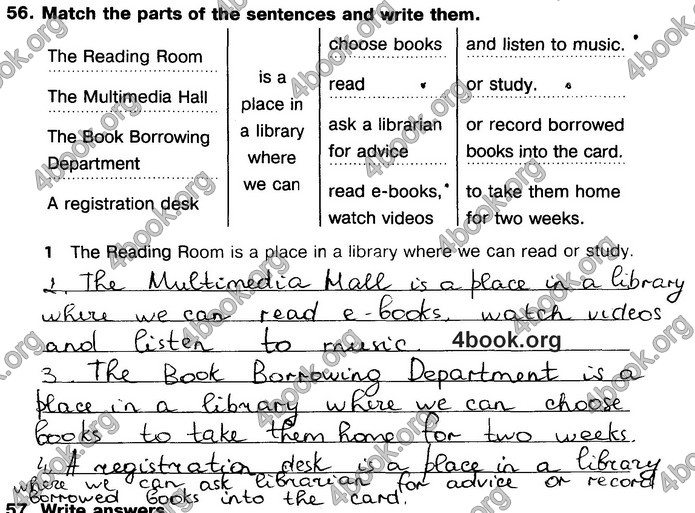 56. Match the parts of the sentences and write them.
The Reading Room
The Multimedia Hall
The Book Borrowing
Department
A registration desk
is a
place in
a library
where
we can
choose books
read
ask a librarian
for advice
read e-books,
watch videos
and listen to music.
or study.
or record borrowed
books into the card.
to take them home
for two weeks.
1 The Reading Room is a place in a library where we can read or study.
2. The Multimedia Hall is a place in a library
where we can read e-books, watch videos
and listen to music.
4book.org
3. The Book Borrowing Department is a
place in a library where we can choose
books to take them home for two weeks.
4. A registration desk is a place in a library
where we can ask librarian for advice or record
borrowed books into the card.
57. Write answers